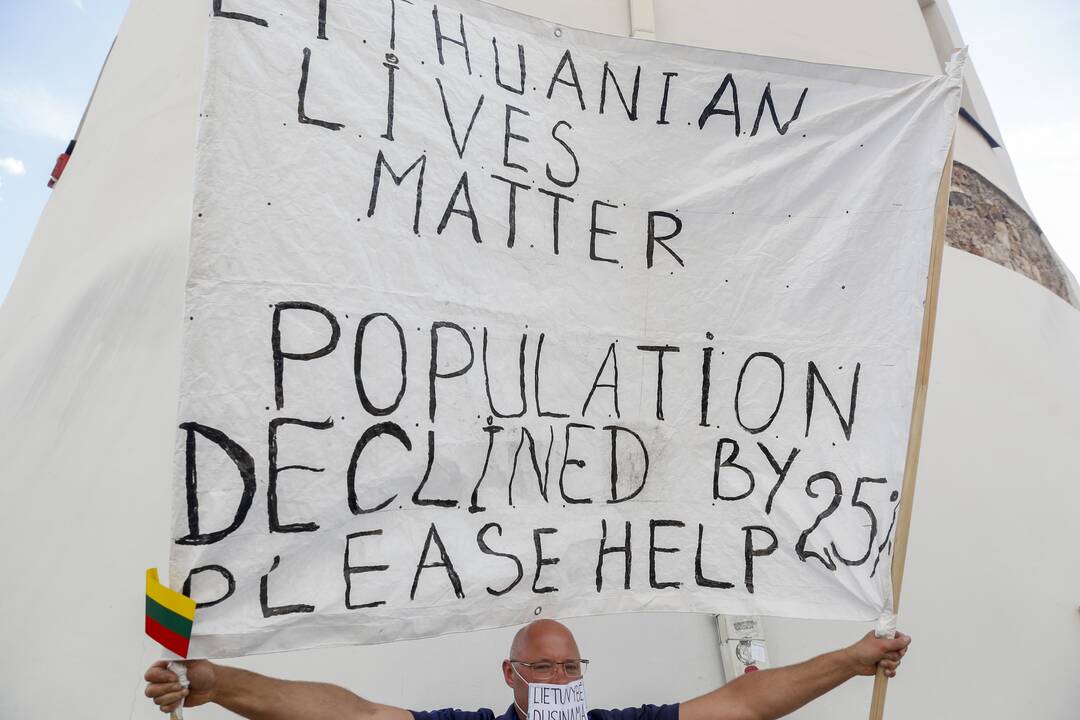 LITHUANIAN
LIVES
MATTER
POPULATION
DECLINED BY 25%
PLEASE HELP
LIETUVYBĖ
DUSINAMA